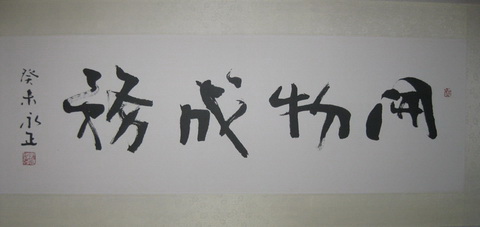 開物成務
癸未永正